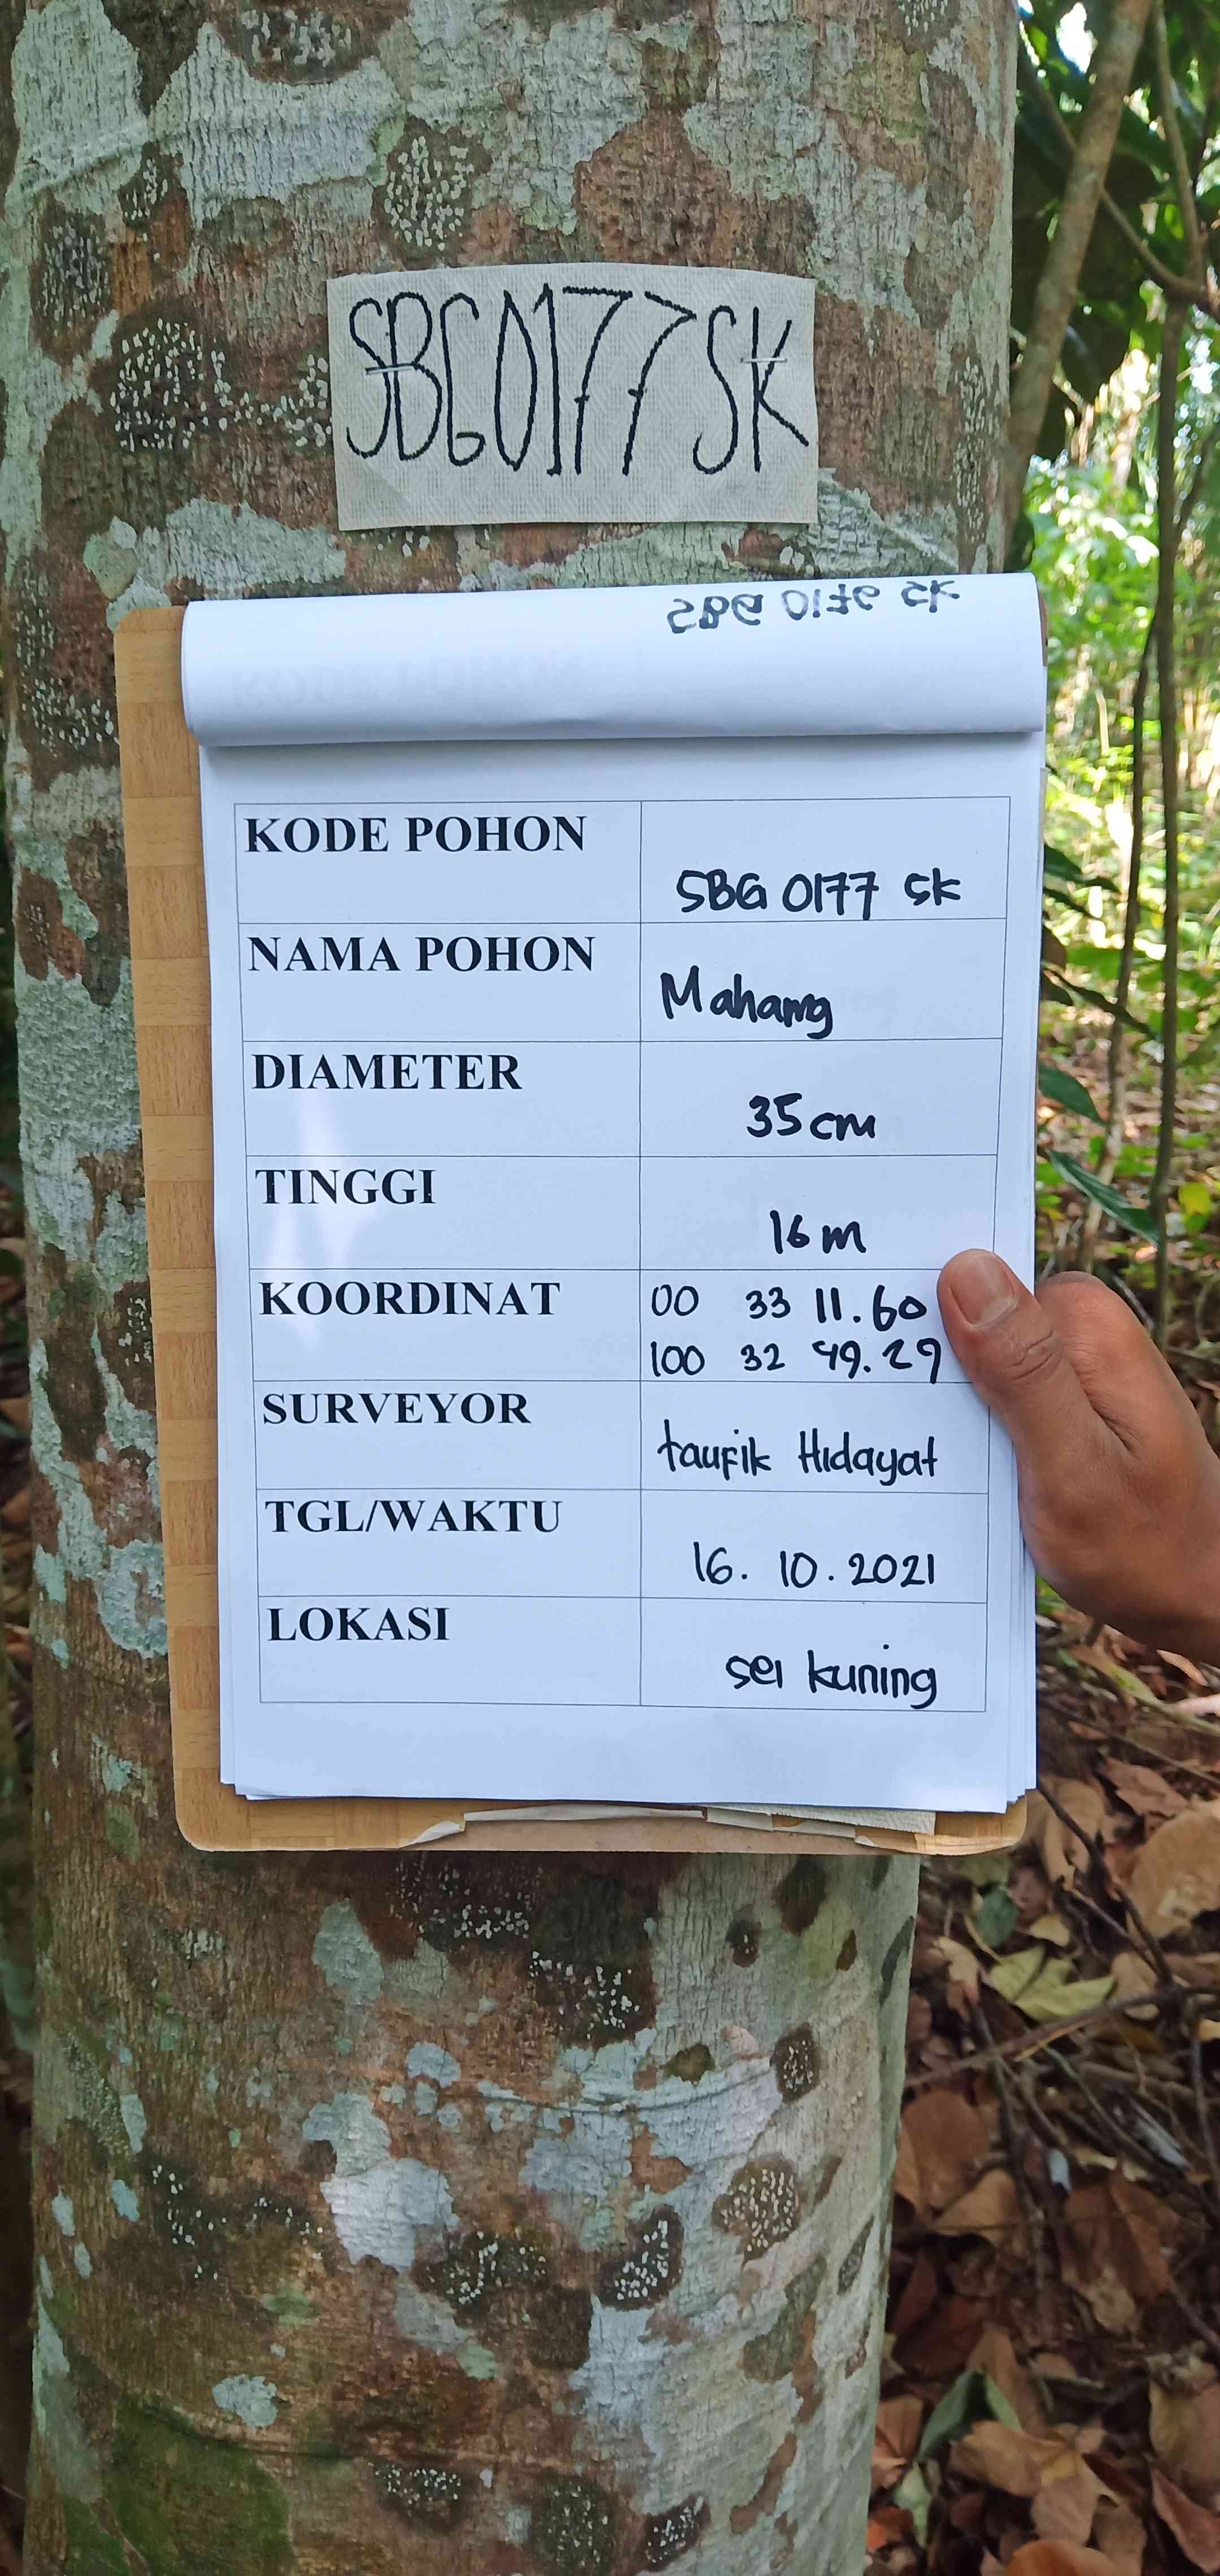 SBG0177SK
SBG 0176 SK
KODE POHON
SBG 0177 SK
NAMA POHON
Mahang
DIAMETER
35 cm
TINGGI
16 m
KOORDINAT
00 33 11.60
100 32 49.29
SURVEYOR
taufik Hidayat
TGL/WAKTU
16. 10. 2021
LOKASI
sei kuning